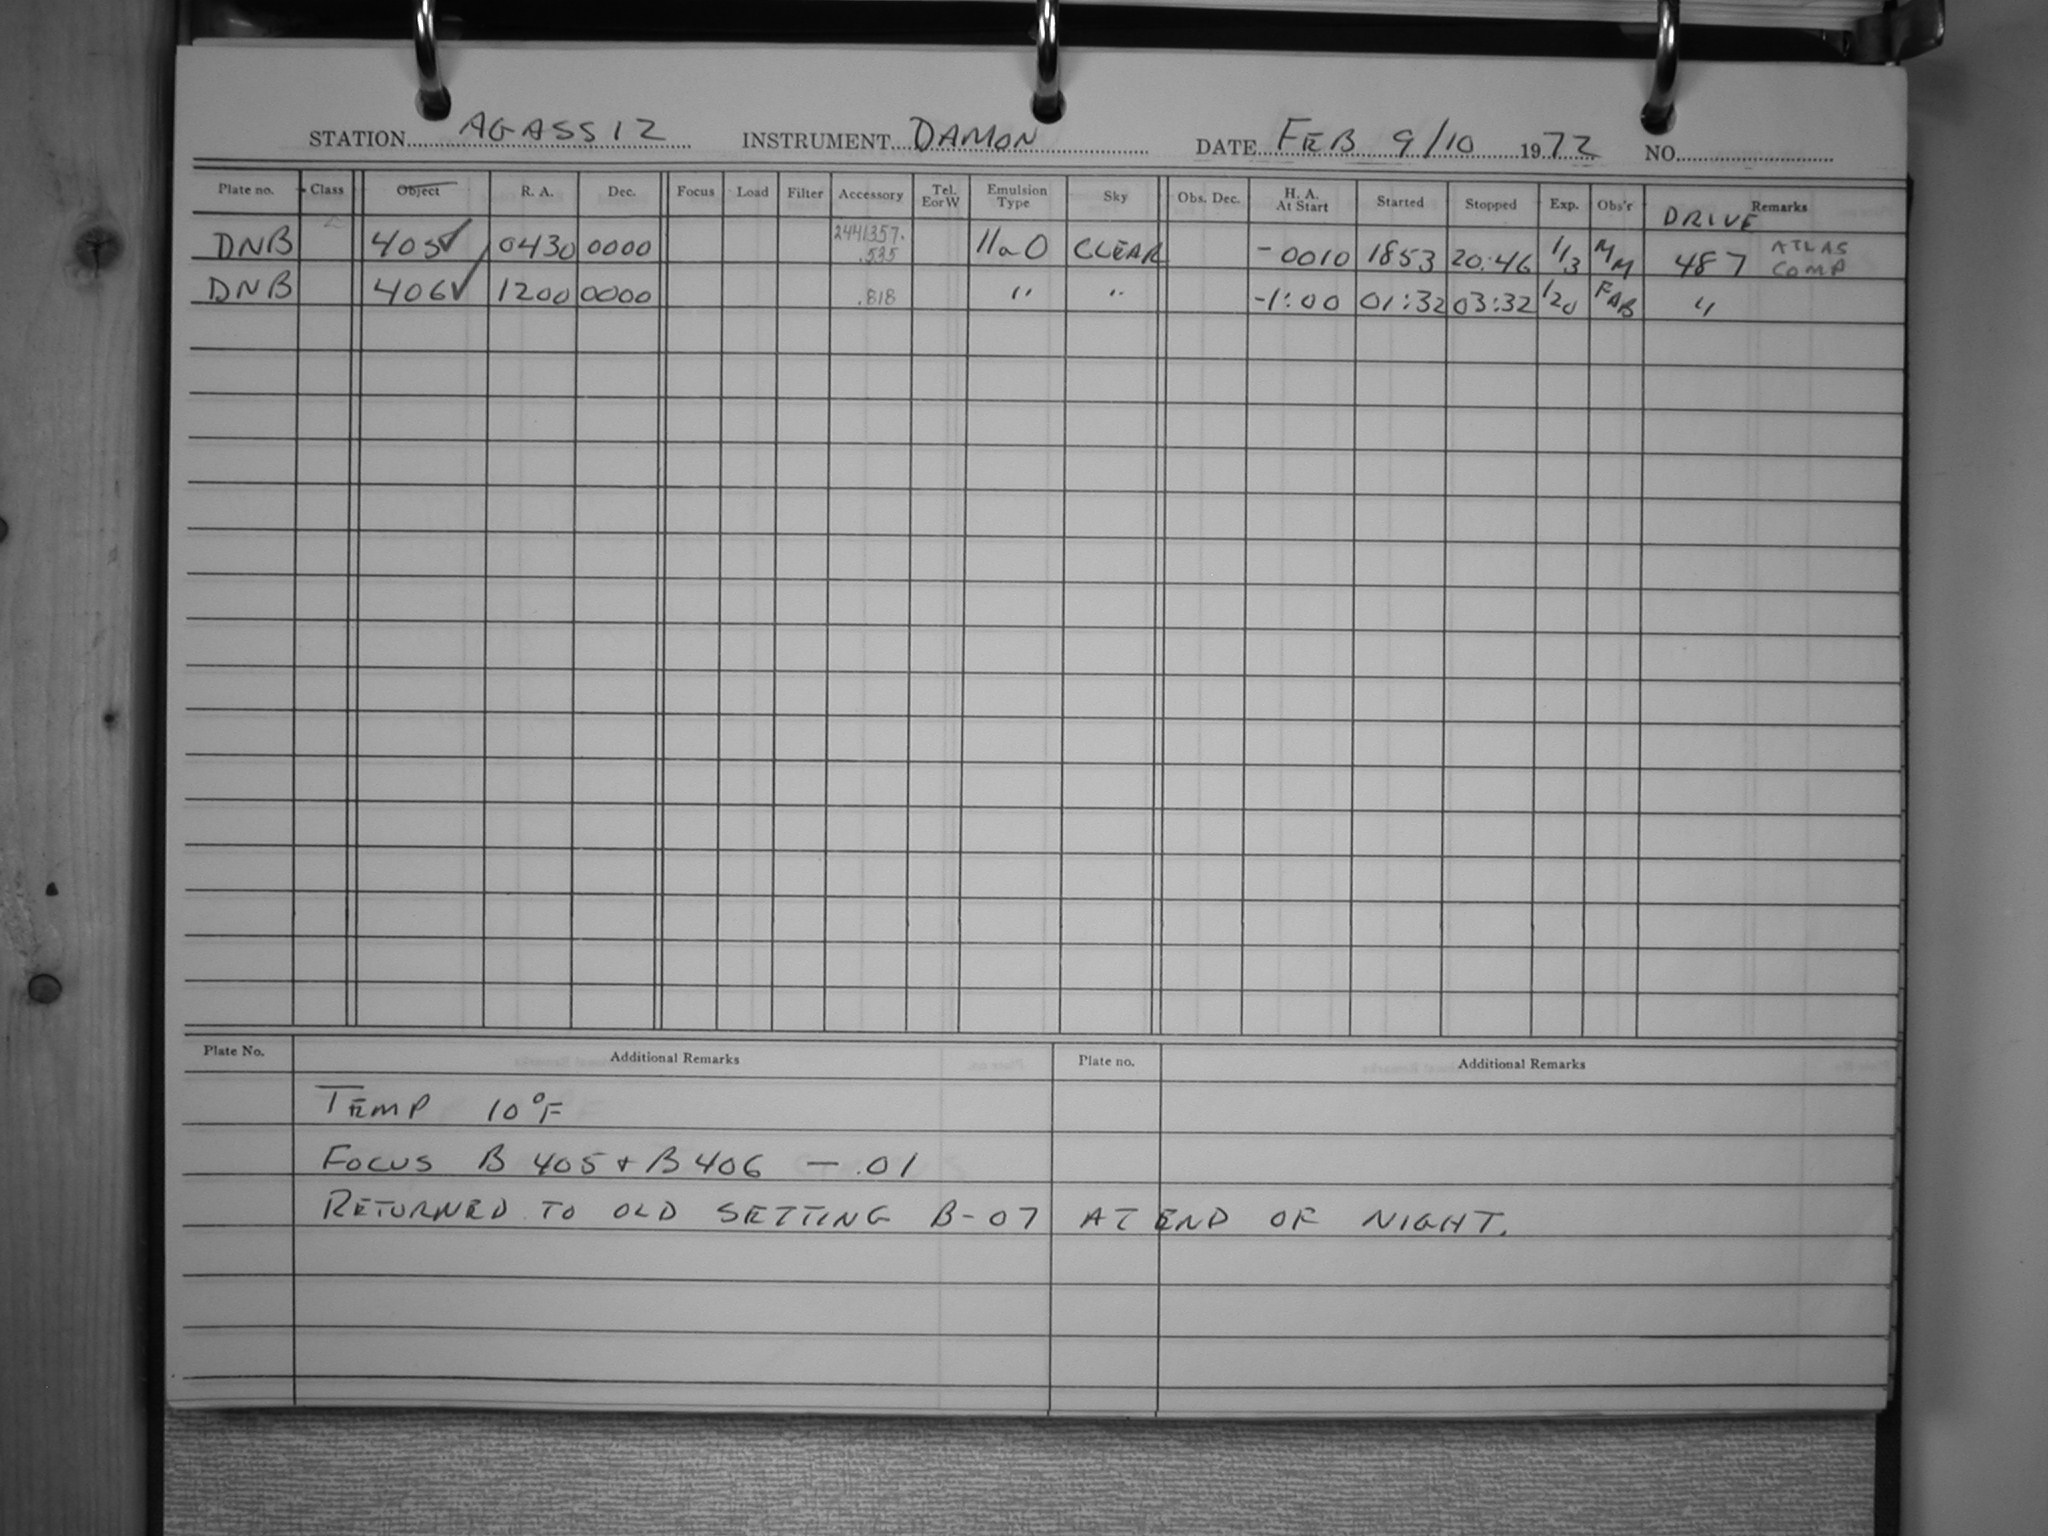 STATION AGASSIZ INSTRUMENT DAMON DATE FEB 9/10 1972 NO.
Plate no. Class Object R. A. Dec. Focus Load Filter Accessory Tel. E or W Emulsion Type Sky Obs. Dec. H. A. At Start Started Stopped Exp. Obs'r DRIVE Remarks
DNB 405✓ 0430 0000 2441357. .535 IIaO CLEAR -0010 1853 20:46 1/3 MM 487 ATLAS COMP
DNB 406✓ 1200 0000 .818 " " -1:00 01:32 03:32 1/20 FAB "
Plate No. Additional Remarks Plate no. Additional Remarks
TEMP 10°F
FOCUS B 405 + B 406 — .01
RETURNED TO OLD SETTING B-07 AT END OF NIGHT.